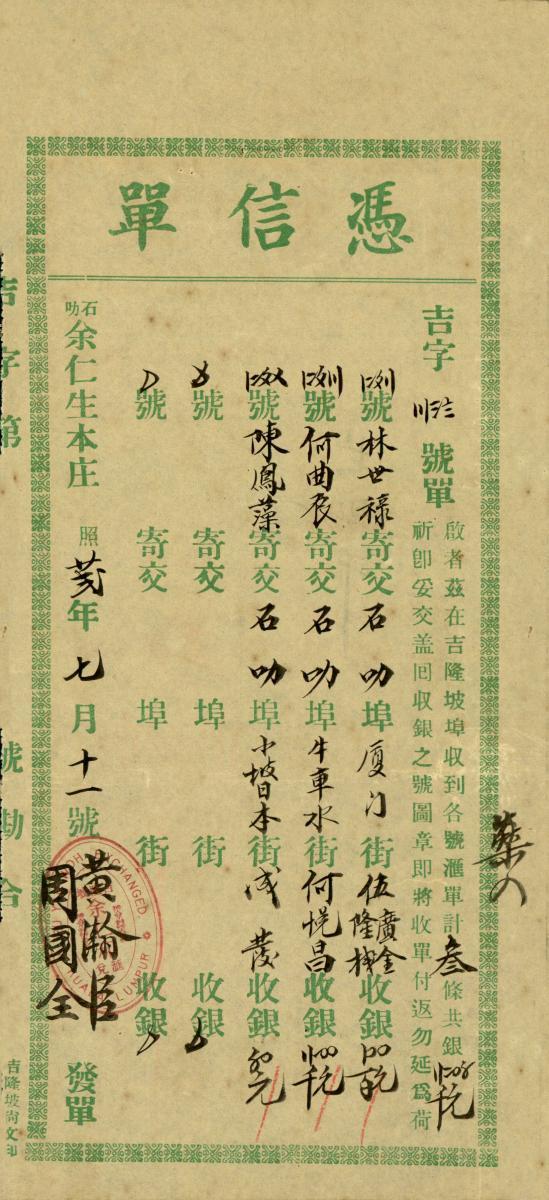 憑信單
吉字 號單
啟者茲在吉隆坡埠收到各號滙單計叁條共銀
祈卽妥交盖囘收銀之號圖章即將收單付返勿延爲荷
號林世祿寄交石叻埠廈门街伍廣隆金收銀
號何曲辰寄交石叻埠牛車水街何悦昌收銀
號陳鳳藻寄交石叻埠小坡日本街成發收銀
號 寄交 埠 街 收銀
號 寄交 埠 街 收銀
石叻余仁生本庄 照 年七月十一號 黃瀚臣 周國全 發單
吉隆坡 文印
吉字第 號勘合
CHANGED
LUMPUR